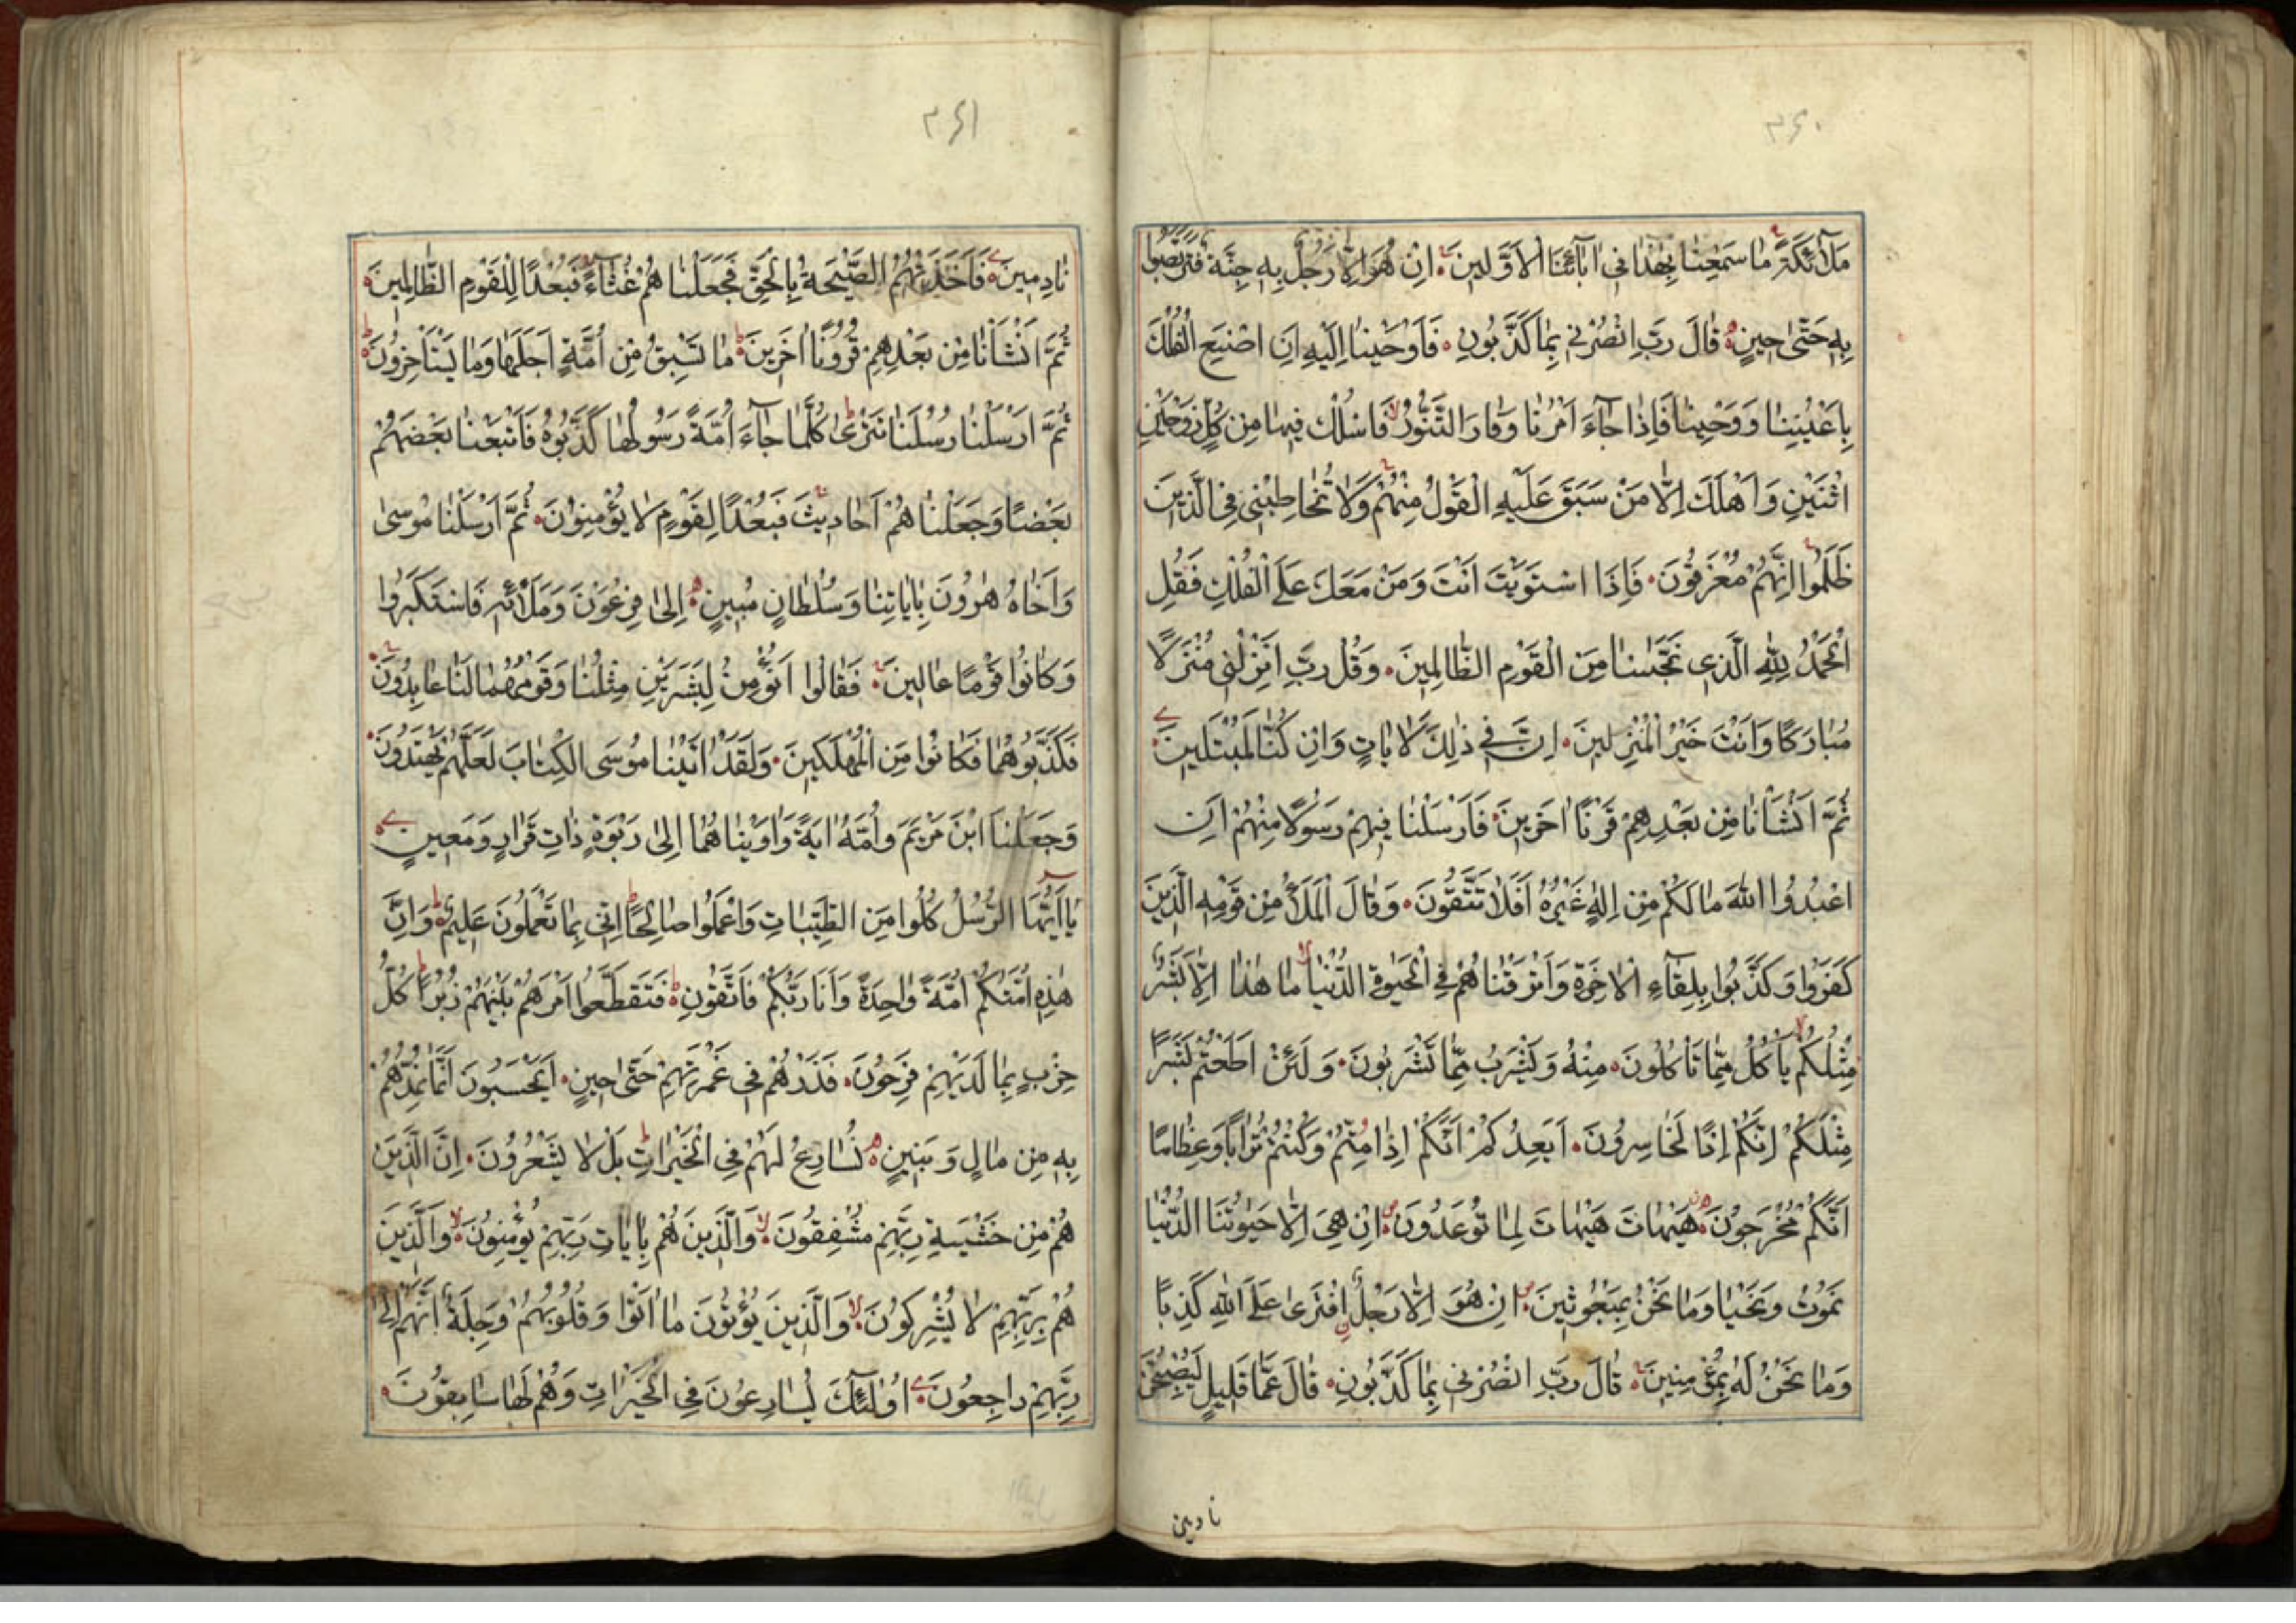 ۳۶۰
مَلَآئِكَةً مَا سَمِعْنَا بِهٰذَا فِى اٰبَآئِنَا الْاَوَّلِينَ اِنْ هُوَ اِلَّا رَجُلٌ بِهِ جِنَّةٌ فَتَرَبَّصُوا
بِهِ حَتّٰى حِينٍ قَالَ رَبِّ انْصُرْنِى بِمَا كَذَّبُونِ فَاَوْحَيْنَا اِلَيْهِ اَنِ اصْنَعِ الْفُلْكَ
بِاَعْيُنِنَا وَوَحْيِنَا فَاِذَا جَآءَ اَمْرُنَا وَفَارَ التَّنُّورُ فَاسْلُكْ فِيهَا مِنْ كُلٍّ زَوْجَيْنِ
اثْنَيْنِ وَاَهْلَكَ اِلَّا مَنْ سَبَقَ عَلَيْهِ الْقَوْلُ مِنْهُمْ وَلَا تُخَاطِبْنِى فِى الَّذِينَ
ظَلَمُوا اِنَّهُمْ مُغْرَقُونَ فَاِذَا اسْتَوَيْتَ اَنْتَ وَمَنْ مَعَكَ عَلَى الْفُلْكِ فَقُلِ
الْحَمْدُ لِلّٰهِ الَّذِى نَجّٰىنَا مِنَ الْقَوْمِ الظَّالِمِينَ وَقُلْ رَبِّ اَنْزِلْنِى مُنْزَلًا
مُبَارَكًا وَاَنْتَ خَيْرُ الْمُنْزِلِينَ اِنَّ فِى ذٰلِكَ لَاٰيَاتٍ وَاِنْ كُنَّا لَمُبْتَلِينَ
ثُمَّ اَنْشَاْنَا مِنْ بَعْدِهِمْ قَرْنًا اٰخَرِينَ فَاَرْسَلْنَا فِيهِمْ رَسُولًا مِنْهُمْ اَنِ
اعْبُدُوا اللّٰهَ مَا لَكُمْ مِنْ اِلٰهٍ غَيْرُهُ اَفَلَا تَتَّقُونَ وَقَالَ الْمَلَاُ مِنْ قَوْمِهِ الَّذِينَ
كَفَرُوا وَكَذَّبُوا بِلِقَآءِ الْاٰخِرَةِ وَاَتْرَفْنَاهُمْ فِى الْحَيٰوةِ الدُّنْيَا مَا هٰذَا اِلَّا بَشَرٌ
مِثْلُكُمْ يَاْكُلُ مِمَّا تَاْكُلُونَ مِنْهُ وَيَشْرَبُ مِمَّا تَشْرَبُونَ وَلَئِنْ اَطَعْتُمْ بَشَرًا
مِثْلَكُمْ اِنَّكُمْ اِذًا لَخَاسِرُونَ اَيَعِدُكُمْ اَنَّكُمْ اِذَا مِتُّمْ وَكُنْتُمْ تُرَابًا وَعِظَامًا
اَنَّكُمْ مُخْرَجُونَ هَيْهَاتَ هَيْهَاتَ لِمَا تُوعَدُونَ اِنْ هِىَ اِلَّا حَيٰوتُنَا الدُّنْيَا
نَمُوتُ وَنَحْيَا وَمَا نَحْنُ بِمَبْعُوثِينَ اِنْ هُوَ اِلَّا رَجُلٌ افْتَرٰى عَلَى اللّٰهِ كَذِبًا
وَمَا نَحْنُ لَهُ بِمُؤْمِنِينَ قَالَ رَبِّ انْصُرْنِى بِمَا كَذَّبُونِ قَالَ عَمَّا قَلِيلٍ لَيُصْبِحُنَّ
نادمين
۳۶۱
نَادِمِينَ فَاَخَذَتْهُمُ الصَّيْحَةُ بِالْحَقِّ فَجَعَلْنَاهُمْ غُثَآءً فَبُعْدًا لِلْقَوْمِ الظَّالِمِينَ
ثُمَّ اَنْشَاْنَا مِنْ بَعْدِهِمْ قُرُونًا اٰخَرِينَ مَا تَسْبِقُ مِنْ اُمَّةٍ اَجَلَهَا وَمَا يَسْتَاْخِرُونَ
ثُمَّ اَرْسَلْنَا رُسُلَنَا تَتْرٰى كُلَّمَا جَآءَ اُمَّةً رَسُولُهَا كَذَّبُوهُ فَاَتْبَعْنَا بَعْضَهُمْ
بَعْضًا وَجَعَلْنَاهُمْ اَحَادِيثَ فَبُعْدًا لِقَوْمٍ لَا يُؤْمِنُونَ ثُمَّ اَرْسَلْنَا مُوسٰى
وَاَخَاهُ هٰرُونَ بِاٰيَاتِنَا وَسُلْطَانٍ مُبِينٍ اِلٰى فِرْعَوْنَ وَمَلَائِهِ فَاسْتَكْبَرُوا
وَكَانُوا قَوْمًا عَالِينَ فَقَالُوا اَنُؤْمِنُ لِبَشَرَيْنِ مِثْلِنَا وَقَوْمُهُمَا لَنَا عَابِدُونَ
فَكَذَّبُوهُمَا فَكَانُوا مِنَ الْمُهْلَكِينَ وَلَقَدْ اٰتَيْنَا مُوسَى الْكِتَابَ لَعَلَّهُمْ يَهْتَدُونَ
وَجَعَلْنَا ابْنَ مَرْيَمَ وَاُمَّهُ اٰيَةً وَاٰوَيْنَاهُمَا اِلٰى رَبْوَةٍ ذَاتِ قَرَارٍ وَمَعِينٍ
يَا اَيُّهَا الرُّسُلُ كُلُوا مِنَ الطَّيِّبَاتِ وَاعْمَلُوا صَالِحًا اِنِّى بِمَا تَعْمَلُونَ عَلِيمٌ وَاِنَّ
هٰذِهِ اُمَّتُكُمْ اُمَّةً وَاحِدَةً وَاَنَا رَبُّكُمْ فَاتَّقُونِ فَتَقَطَّعُوا اَمْرَهُمْ بَيْنَهُمْ زُبُرًا كُلُّ
حِزْبٍ بِمَا لَدَيْهِمْ فَرِحُونَ فَذَرْهُمْ فِى غَمْرَتِهِمْ حَتّٰى حِينٍ اَيَحْسَبُونَ اَنَّمَا نُمِدُّهُمْ
بِهِ مِنْ مَالٍ وَبَنِينٍ نُسَارِعُ لَهُمْ فِى الْخَيْرَاتِ بَلْ لَا يَشْعُرُونَ اِنَّ الَّذِينَ
هُمْ مِنْ خَشْيَةِ رَبِّهِمْ مُشْفِقُونَ وَالَّذِينَ هُمْ بِاٰيَاتِ رَبِّهِمْ يُؤْمِنُونَ وَالَّذِينَ
هُمْ بِرَبِّهِمْ لَا يُشْرِكُونَ وَالَّذِينَ يُؤْتُونَ مَا اٰتَوْا وَقُلُوبُهُمْ وَجِلَةٌ اَنَّهُمْ اِلٰى
رَبِّهِمْ رَاجِعُونَ اُولٰئِكَ يُسَارِعُونَ فِى الْخَيْرَاتِ وَهُمْ لَهَا سَابِقُونَ